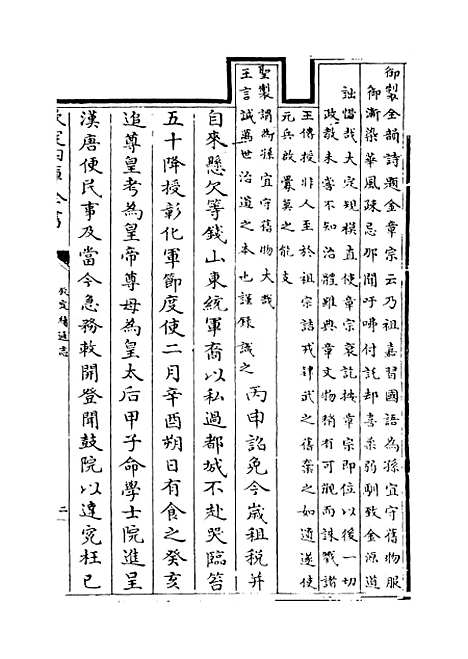 御製全韻詩題金章宗云乃祖嘉習國語為孫宜守舊物服
御漸染華風疎忌那聞吁咈付託却喜柔弱馴致金源道
詘惜哉大定規模直使章宗衰訖按章宗即位以後一切
政教未嘗不知治體雖典章文物稍有可觀而誅戮諸
王傳授非人至於祖宗詰戎肄武之舊棄之如遺遂使
元兵啟釁莫之能支
聖製謂為孫宜守舊物大哉
王言誠萬世治道之本也謹錄識之
丙申詔免今歲租稅并
自來懸欠等錢山東統軍裔以私過都城不赴哭臨笞
五十降授彰化軍節度使二月辛酉朔日有食之癸亥
追尊皇考為皇帝尊母為皇太后甲子命學士院進呈
漢唐便民事及當今急務敕開登聞鼓院以達冤枉己
欽定四庫全書
欽定續通志
二